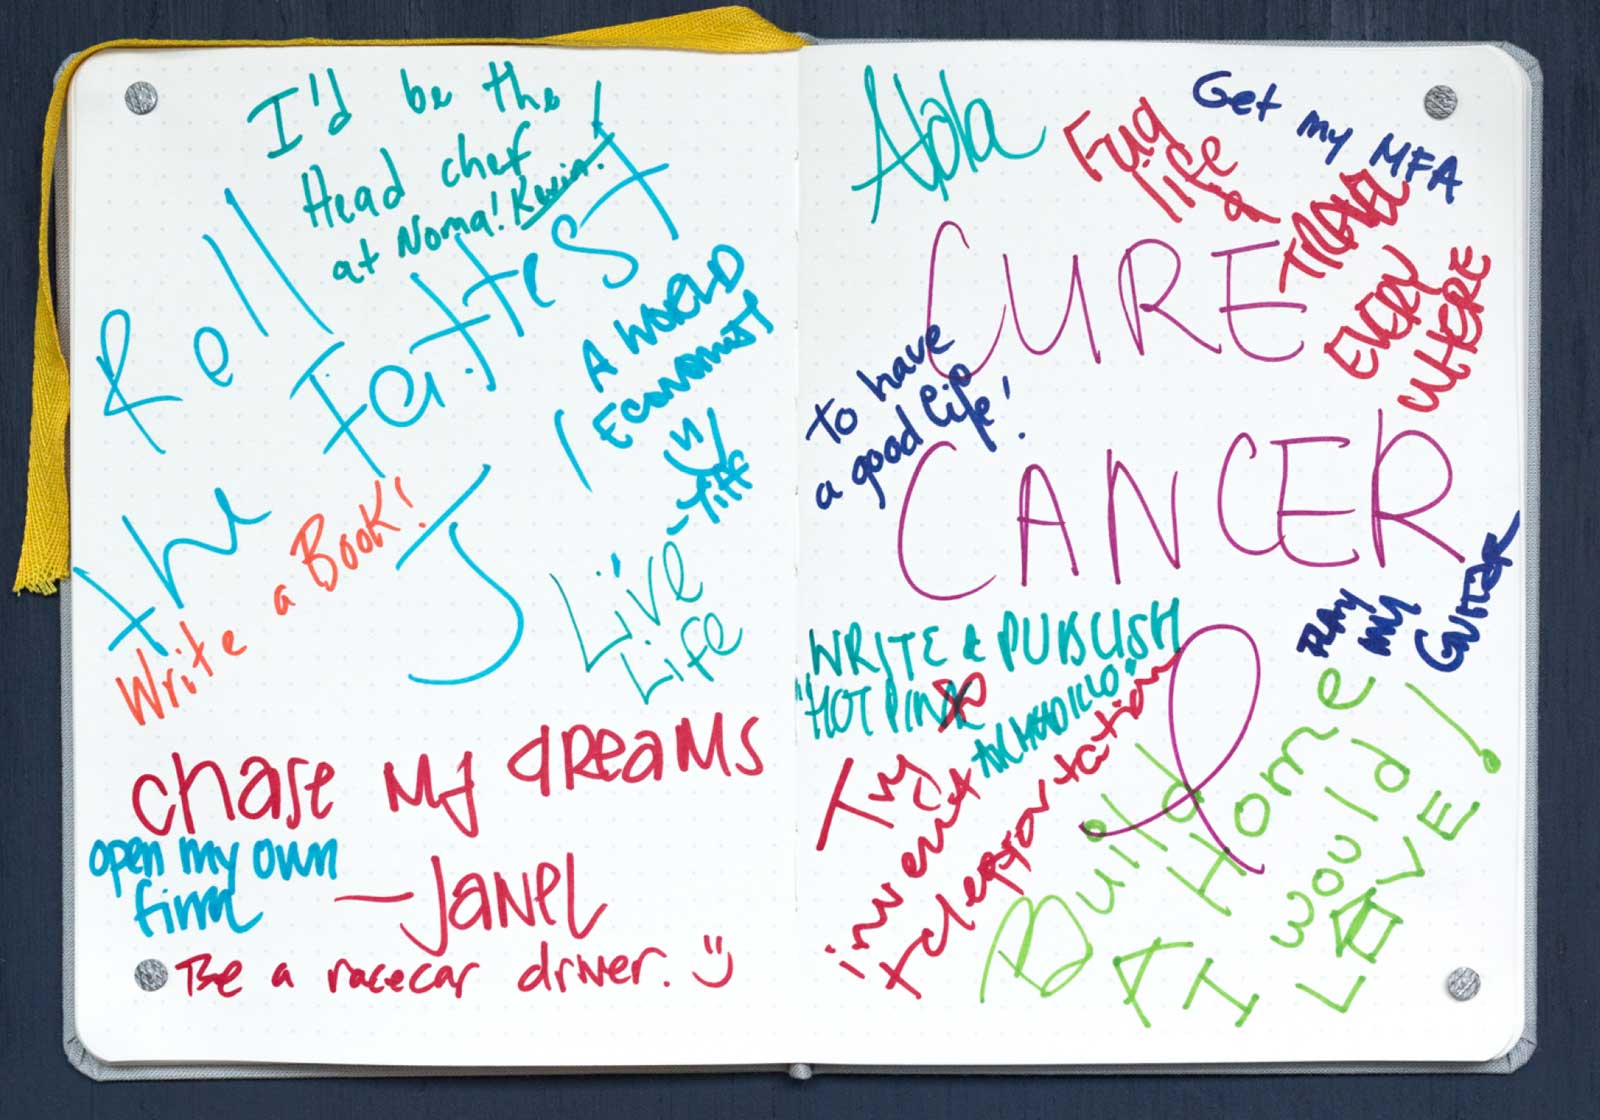 I'd be the
Head chef
at Noma! Kevin!
Roll
the
Fattest
J
A WORLD
Economist
-Tiff
Write
a Book!
Live
Life
chase my dreams
-Janel
open my own
firm
Be a racecar driver.
Get my MFA
Fug
life &
TRAVEL
EVERY
WHERE
CURE
CANCER
to have
a good life!
PLAY
MY
GUITAR
WRITE & PUBLISH
"HOT PINK
ARMADILLO"
Try
invent
teleportation
Build
A Home
I would
LOVE!